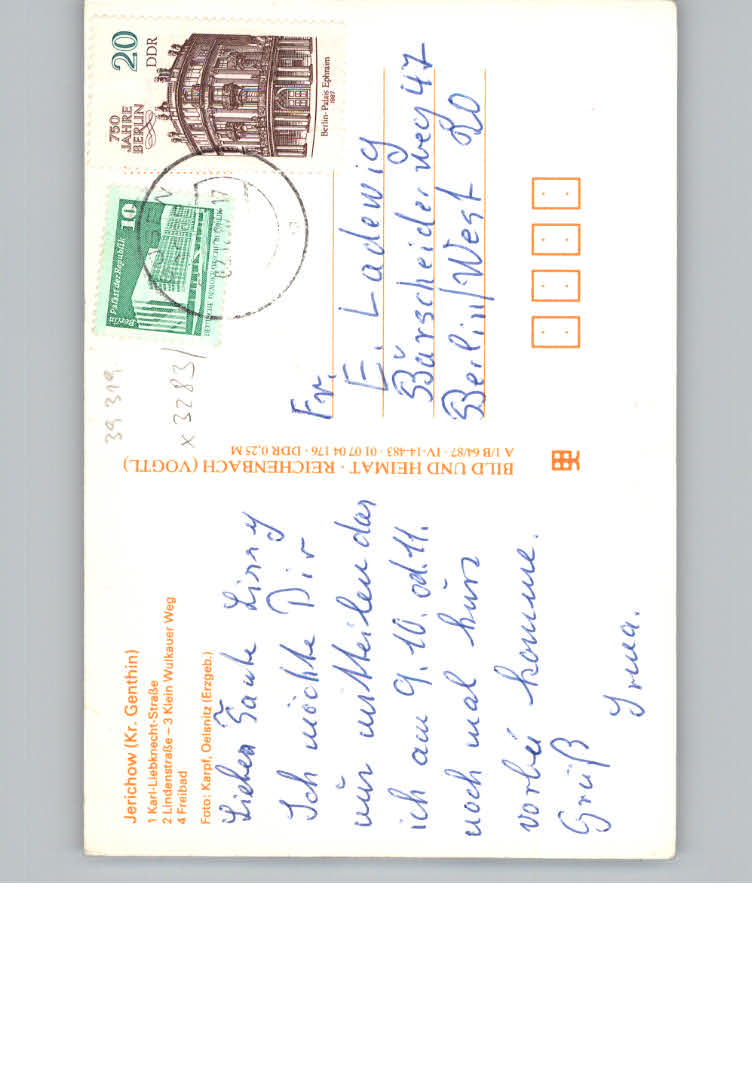 Jerichow (Kr. Genthin)
1 Karl-Liebknecht-Straße
2 Lindenstraße – 3 Klein Wulkauer Weg
4 Freibad
Foto: Karpf, Oelsnitz (Erzgeb.)
Lieben Tante Lissy
Ich möchte Dir
nur mitteilen das
ich am 9. 10. od. 11.
noch mal kurs
vorbei komme.
Gruß
Irma.
BILD UND HEIMAT · REICHENBACH (VOGTL)
A 1/B 64/87 · IV-14-483 · 01 07 04 176 · DDR 0,25 M
39 319
x 3283/
10
Palast der Republik
Berlin
DEUTSCHE DEMOKRATISCHE REPUBLIK
750
JAHRE
BERLIN
20
DDR
Berlin-Palais Ephraim
1987
17
Fr.
E. Ladewig
Bürscheider weg 47
Berlin/West 20